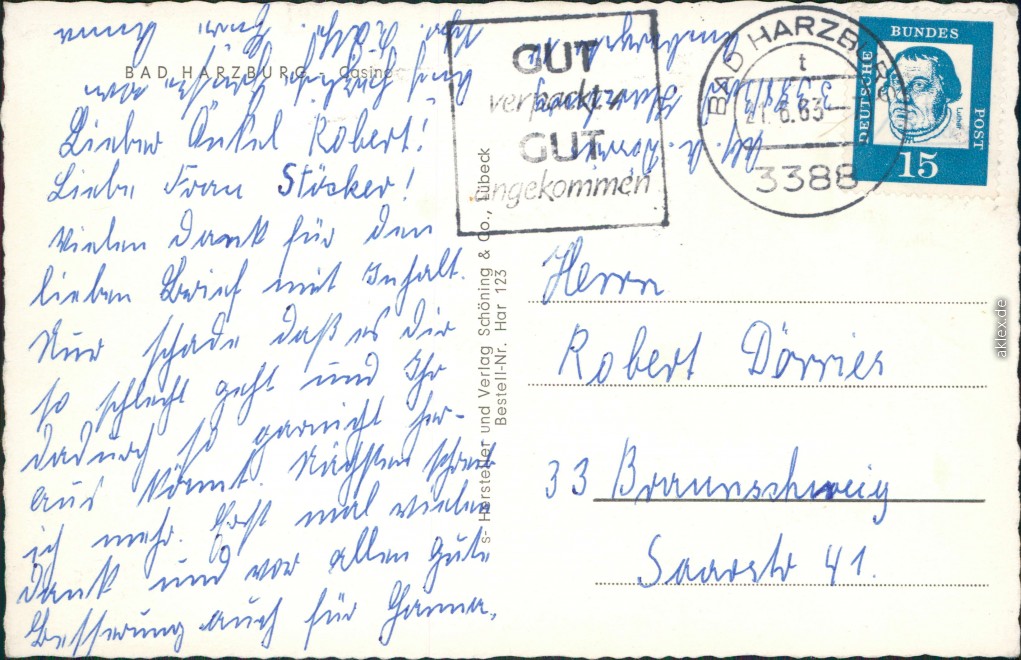 BAD HARZBURG - Casino
Lieber Onkel Robert!
Liebe Frau Stöcker!
Vielen Dank für den
lieben Brief mit Inhalt.
Nur schade daß es Dir
so schlecht geht und Ihr
dadurch so garnicht her-
aus könnt. Nächstens schreib
ich mehr. Erst mal vielen
Dank und vor allen gute
Besserung auch für Hanna.
GUT
verpackt
GUT
angekommen
BAD HARZBURG
t
21.6.63
3388
DEUTSCHE
BUNDES
POST
Luther
15
s- Hersteller und Verlag Schöning & Co., Lübeck
Bestell-Nr. Har 123
Herrn
Robert Dörries
33 Braunschweig
Saarstr 41.
aklex.de